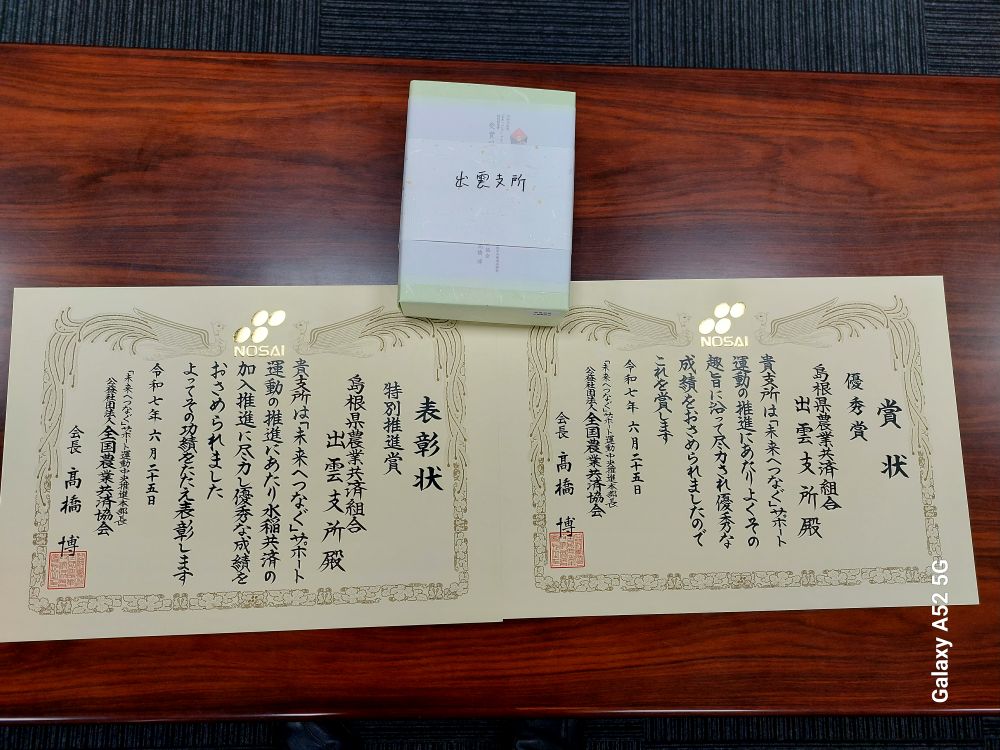 出雲支所
NOSAI
表彰状
特別推進賞
島根県農業共済組合
出雲支所殿
貴支所は「未来へつなぐ」サポート
運動の推進にあたり水稲共済の
加入推進に尽力し優秀な成績を
おさめられました
よってその功績をたたえ表彰します
令和七年六月二十五日
「未来へつなぐ」サポート運動中央推進本部長
公益社団法人全国農業共済協会
会長 髙橋 博
NOSAI
賞状
優秀賞
島根県農業共済組合
出雲支所殿
貴支所は「未来へつなぐ」サポート
運動の推進にあたりよくその
趣旨に沿って尽力され優秀な
成績をおさめられましたので
これを賞します
令和七年六月二十五日
「未来へつなぐ」サポート運動中央推進本部長
公益社団法人全国農業共済協会
会長 髙橋 博
Galaxy A52 5G